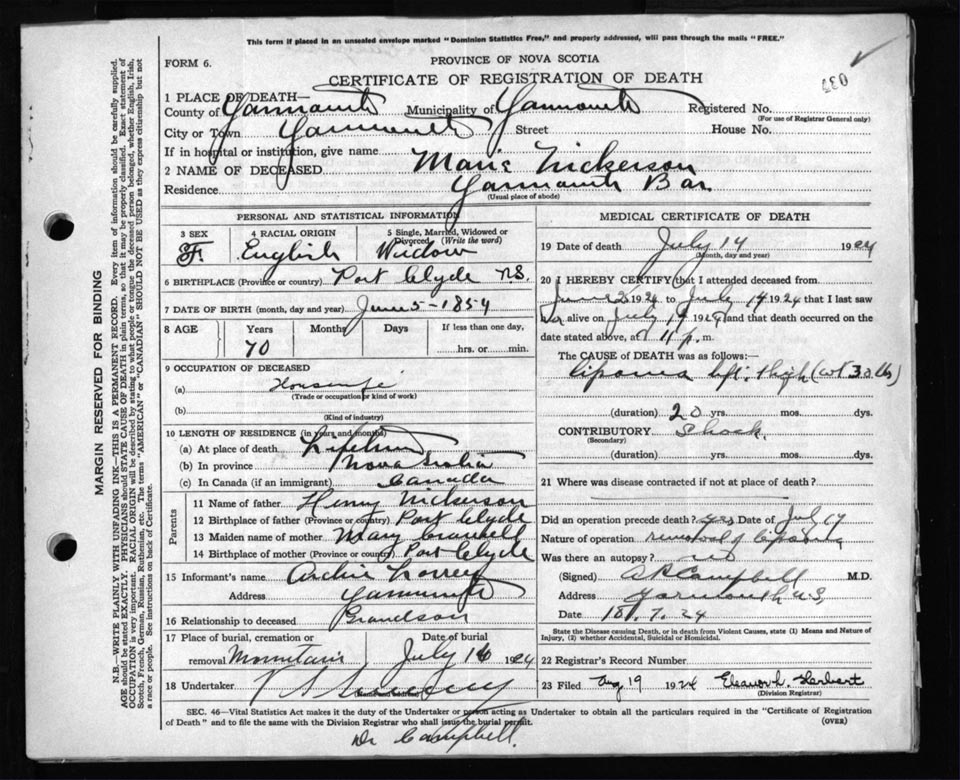 This form if placed in an unsealed envelope marked "Dominion Statistics Free," and properly addressed, will pass through the mails "FREE."
FORM 6.
PROVINCE OF NOVA SCOTIA
CERTIFICATE OF REGISTRATION OF DEATH
030
MARGIN RESERVED FOR BINDING
N.B.—WRITE PLAINLY WITH UNFADING INK—THIS IS A PERMANENT RECORD. Every item of information should be carefully supplied.
AGE should be stated EXACTLY. PHYSICIANS should STATE CAUSE OF DEATH in plain terms, so that it may be properly classified. Exact statement of
OCCUPATION is very important. RACIAL ORIGIN will be described by stating to what people or tongue the deceased person belonged, whether English, Irish,
Scotch, French, German, Russian, Ruthenian, etc. The terms "AMERICAN" or "CANADIAN" SHOULD NOT BE USED as they express citizenship but not
a race or people. See instructions on back of Certificate.
1 PLACE OF DEATH—
County of Yarmouth Municipality of Yarmouth Registered No.
(For use of Registrar General only)
City or Town Yarmouth Street House No.
If in hospital or institution, give name
2 NAME OF DECEASED Marie Nickerson
Residence Yarmouth Bar
(Usual place of abode)
PERSONAL AND STATISTICAL INFORMATION
3 SEX F.
4 RACIAL ORIGIN English
5 Single, Married, Widowed or Divorced (Write the word) Widow
6 BIRTHPLACE (Province or country) Port Clyde N.S.
7 DATE OF BIRTH (month, day and year) June 5 - 1854
8 AGE Years Months Days If less than one day,
70 hrs. or min.
9 OCCUPATION OF DECEASED
(a) Housewife
(Trade or occupation or kind of work)
(b)
(Kind of industry)
10 LENGTH OF RESIDENCE (in years and months)
(a) At place of death Lifetime
(b) In province Nova Scotia
(c) In Canada (if an immigrant) Canada
Parents
11 Name of father Henry Nickerson
12 Birthplace of father (Province or country) Port Clyde
13 Maiden name of mother Mary
14 Birthplace of mother (Province or country) Port Clyde
15 Informant's name Archie
Address Yarmouth
16 Relationship to deceased Grandson
17 Place of burial, cremation or Date of burial
removal Mountain July 16 1924
18 Undertaker V S Sweeny
MEDICAL CERTIFICATE OF DEATH
19 Date of death July 14 1924
(Month, day and year)
20 I HEREBY CERTIFY that I attended deceased from
June 1924 to July 14 1924 that I last saw
her alive on July 14 1924 and that death occurred on
date stated above, at 11 p. m.
The CAUSE of DEATH was as follows:
lipoma left thigh (wt 30 lbs)
(duration) 20 yrs. mos. dys.
CONTRIBUTORY Shock.
(Secondary)
(duration) yrs. mos. dys.
21 Where was disease contracted if not at place of death?
Did an operation precede death? yes Date of July 14
Nature of operation removal of lipoma
Was there an autopsy? no
(Signed) A R Campbell M.D.
Address Yarmouth N.S.
Date 18.7.24
State the Disease causing Death, or in death from Violent Causes, state (1) Means and Nature of
Injury, (2) whether Accidental, Suicidal or Homicidal.
22 Registrar's Record Number
23 Filed Aug 19 1924 Eleanor L. Harbert
(Division Registrar)
SEC. 46—Vital Statistics Act makes it duty of the Undertaker or person acting as Undertaker to obtain all the particulars required in the "Certificate of Registration
of Death" and to file the same with the Division Registrar who shall issue the burial permit. (OVER)
Dr Campbell.